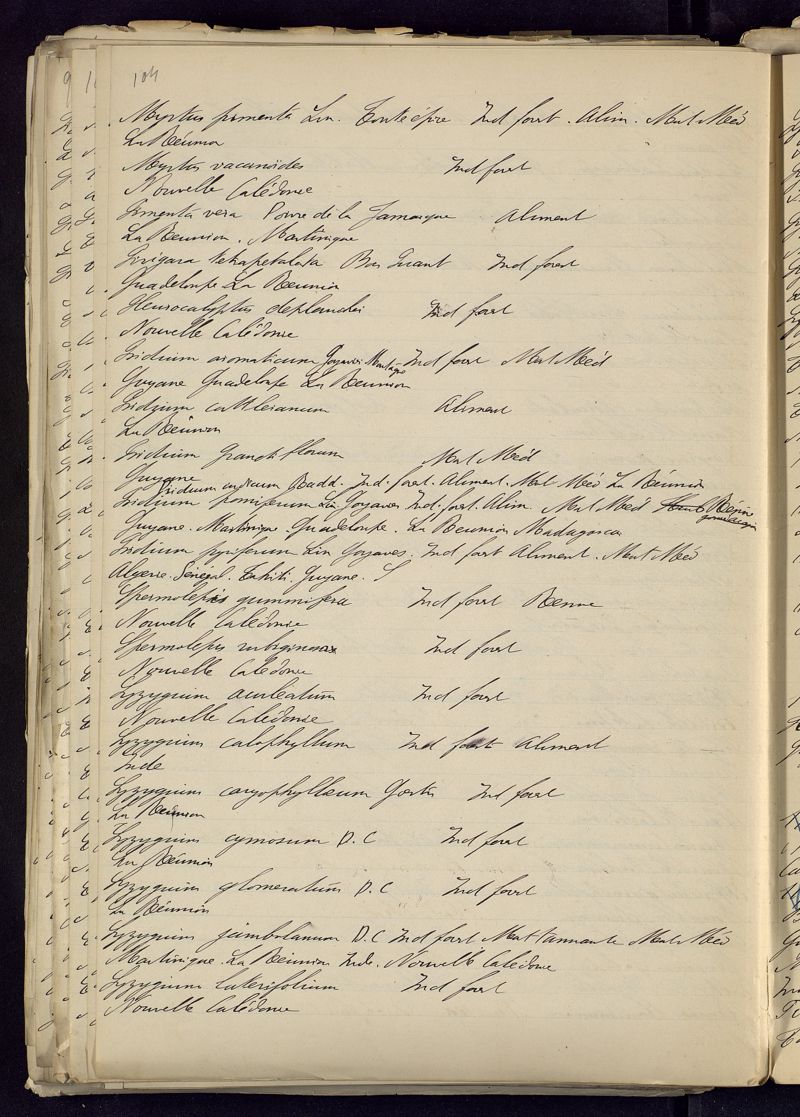 104
Myrtus pimenta Lin. Toute épice Ind forest. Alim. Mat Méd
La Réunion
Myrtus vacanoides Ind forest
Nouvelle Calédonie
Pimenta vera Poivre de la Jamaique Aliment
La Réunion. Martinique
Pirigara tetrapetalata Bois Puant Ind forest
Guadeloupe La Réunion
Pleurocalyptus deplanchei Ind forest
Nouvelle Calédonie
Psidium aromaticum Goyavier Montagne Ind forest Mat Méd
Guyane Guadeloupe La Réunion
Psidium cattleianum Aliment
La Réunion
Psidium grandiflorum Mat Méd
Guyane
Psidium indicum Radd. Ind. forest. Aliment. Mat Méd La Réunion
Psidium pomiferum Lin Goyaves Ind. forest. Alim. Mat Méd
Guyane. Martinique. Guadeloupe. La Réunion Madagascar
Psidium pyriferum Lin Goyaves. Ind forest Aliment. Mat Méd
Algerie. Sénégal. Tahiti. Guyane. S
Spermolepis gummifera Ind forest Résine
Nouvelle Calédonie
Spermolepis rubiginosa Ind forest
Nouvelle Calédonie
Syzygium auleatum Ind forest
Nouvelle Calédonie
Syzygium calophyllum Ind forest Aliment
Inde
Syzygium caryophyllaeum Gaertn Ind forest
La Réunion
Syzygium cymosum D.C Ind forest
La Réunion
Syzygium glomeratum D.C Ind forest
La Réunion
Syzygium jambolanum D.C Ind forest Mat tannante Mat Méd
Martinique. La Réunion Inde. Nouvelle Calédonie
Syzygium laterifolium Ind forest
Nouvelle Calédonie